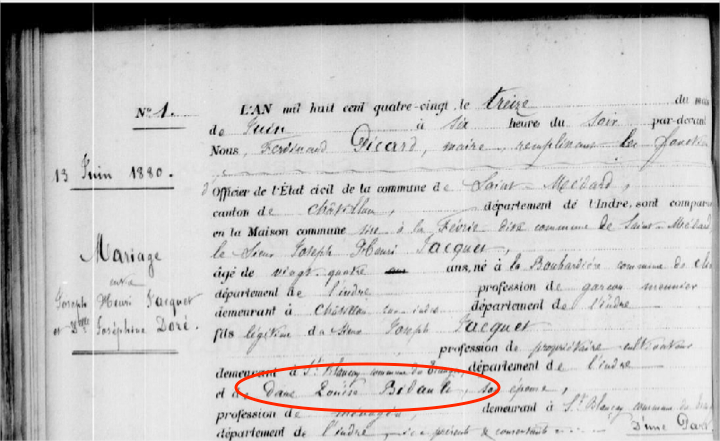 N° 1.
13 Juin 1880.
Mariage
entre
Joseph
Henri Jacquet
et Dlle Joséphine
Doré.
L'AN mil huit cent quatre-vingt, le treize du mois
de Juin à six heure du soir par-devant
Nous, Ferdinand Picard, maire, remplissant les fonction
Officier de l'État civil de la commune de Saint-Médard,
canton de Châtillon, département de l'Indre, sont comparu
en la Maison commune sise à la Février dite commune de Saint-Médard
le Sieur Joseph Henri Jacquet,
âgé de vingt-quatre ans, né à la Boubardière commune de
département de l'indre profession de garçon meunier
demeurant à Châtillon sur indre département de l'indre
fils légitime de Sieur Joseph Jacquet
profession de propriétaire cultivateur
demeurant à St commune de département de l'indre
et de dame Louise Bidault, son épouse,
profession de ménagère demeurant à St commune de
département de l'indre présents et consentants D'une Part